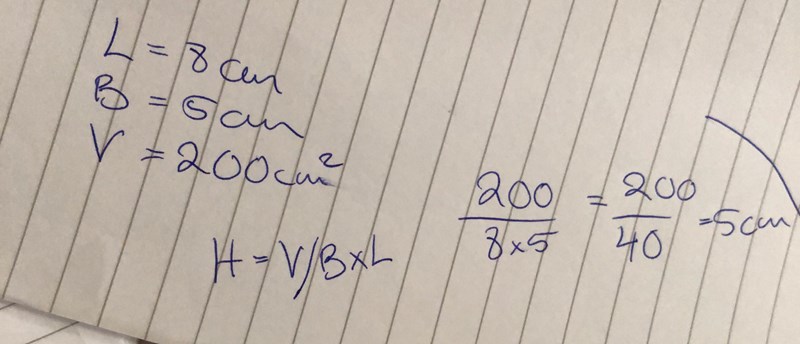 L = 8 cm
B = 5 cm
V = 200 cm²
H = V/B×L
200/8×5 = 200/40 = 5 cm